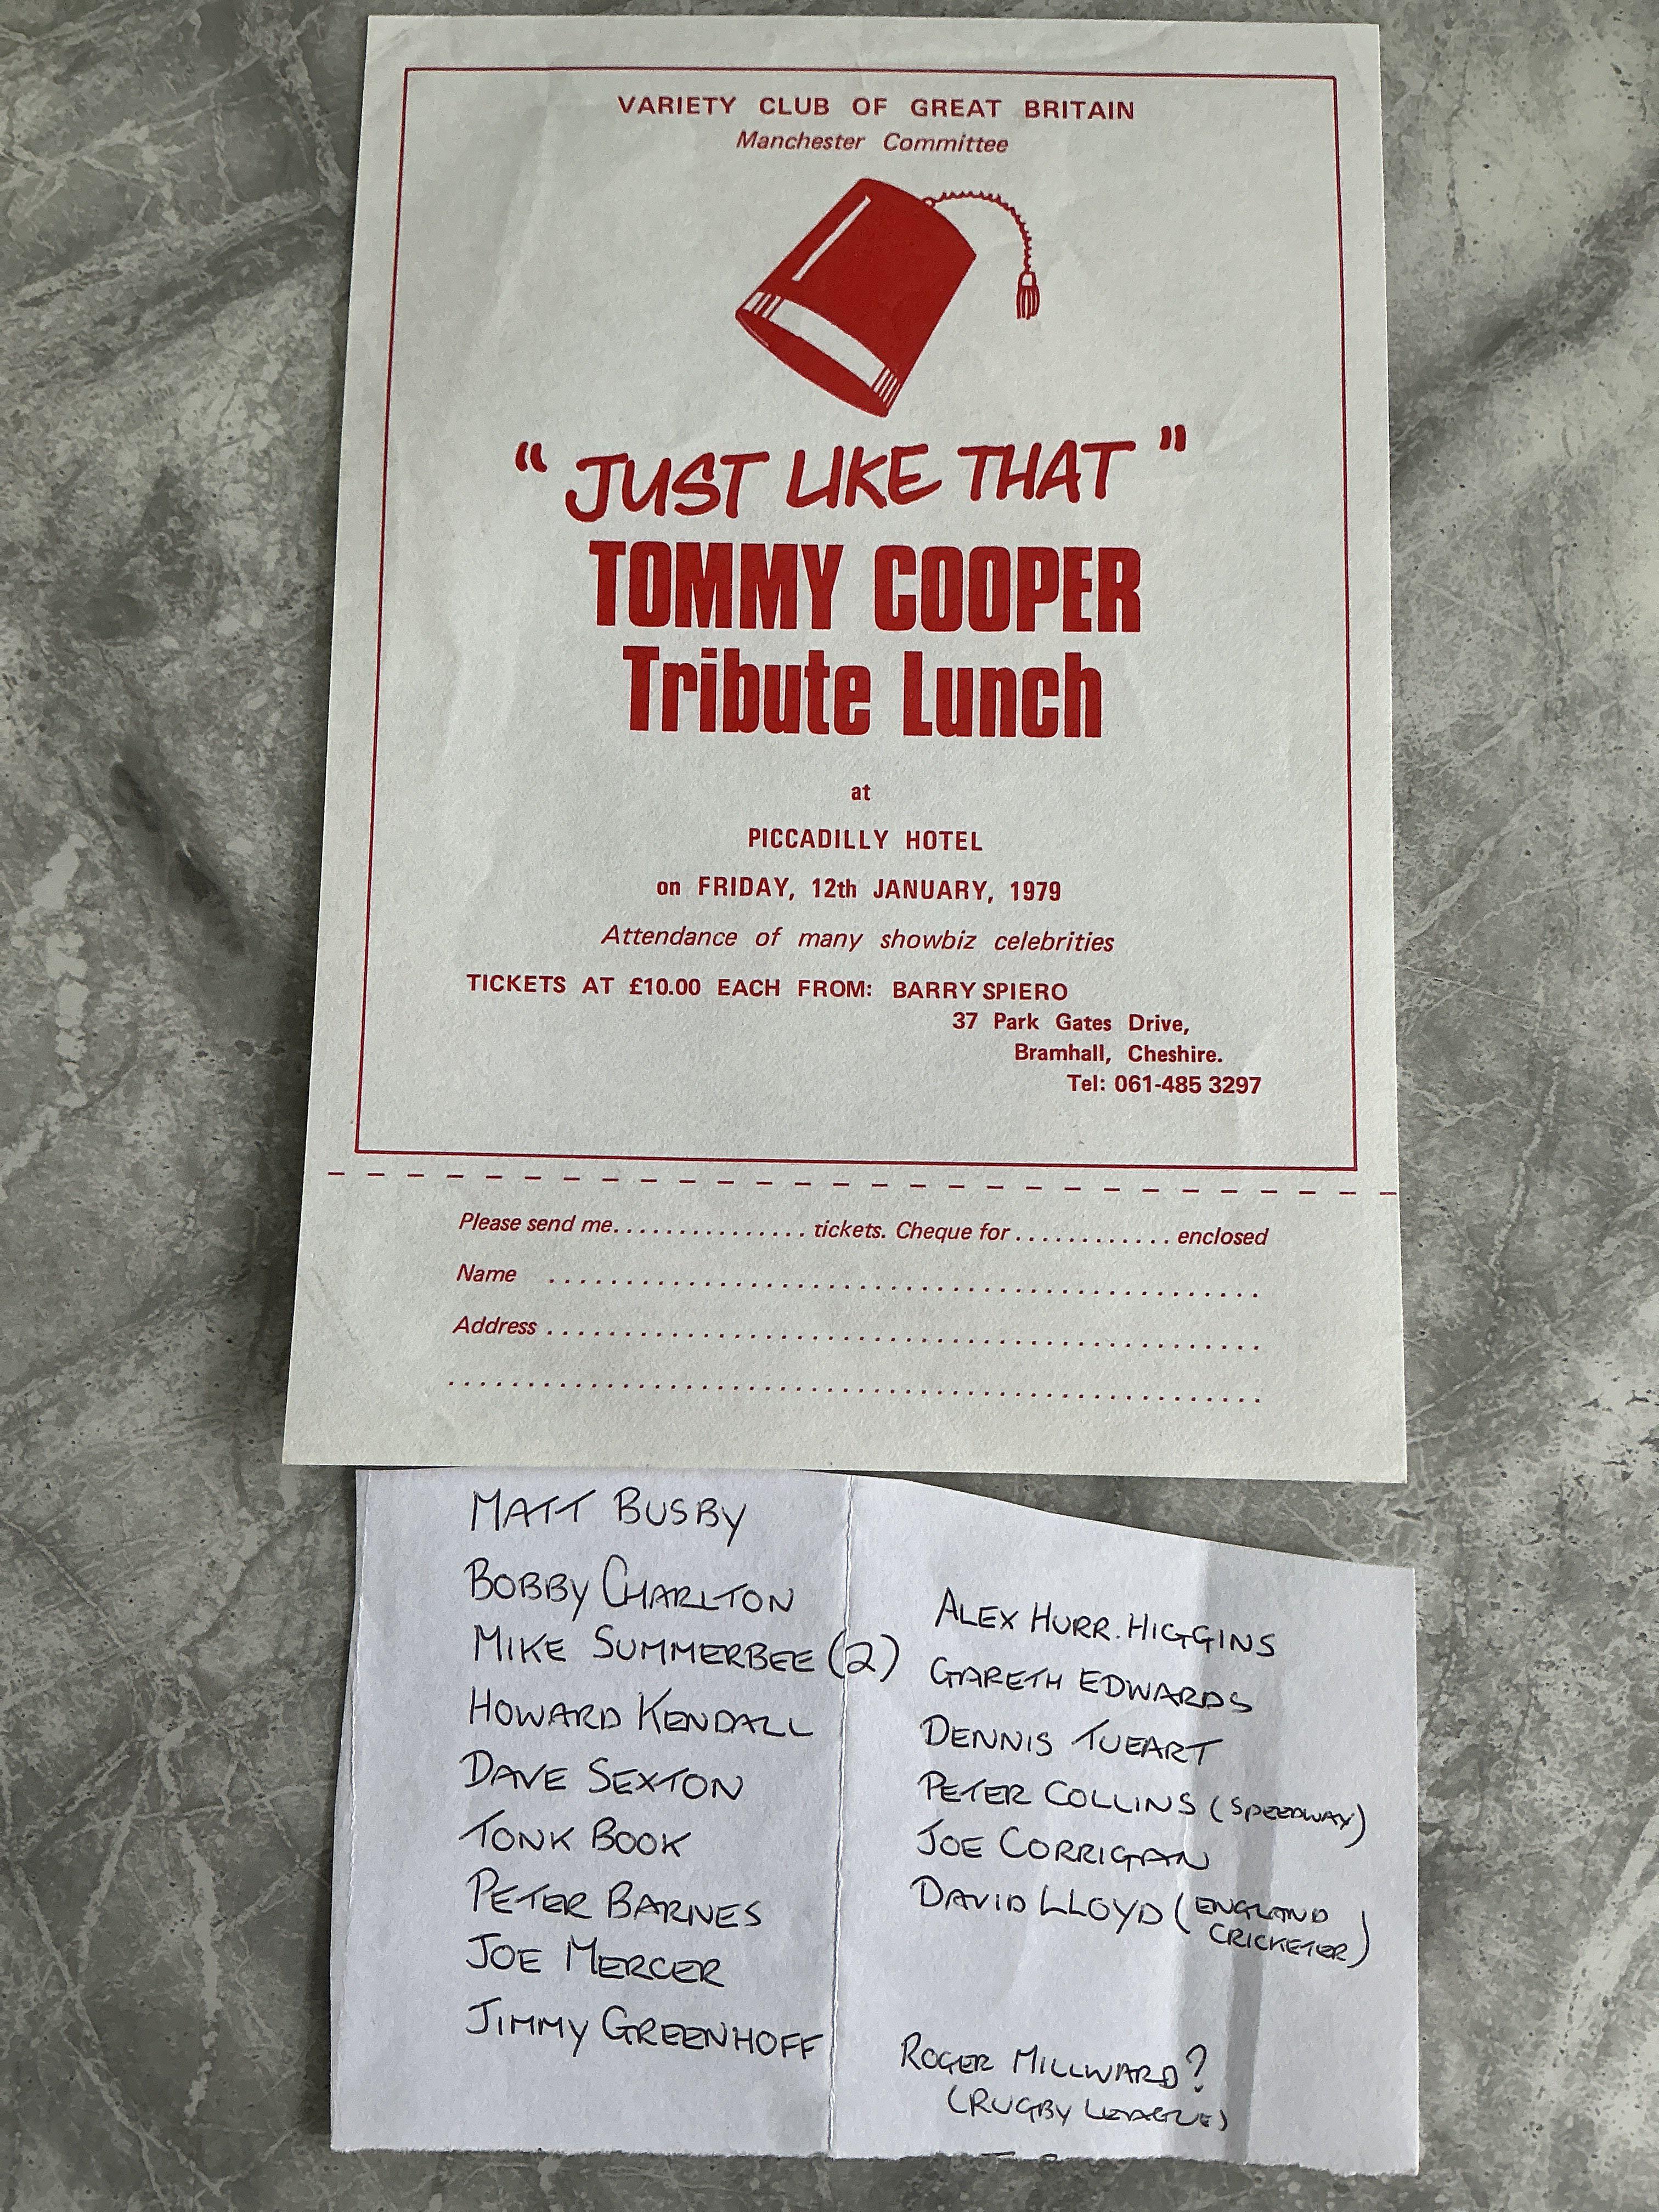 VARIETY CLUB OF GREAT BRITAIN
Manchester Committee
"JUST LIKE THAT"
TOMMY COOPER
Tribute Lunch
at
PICCADILLY HOTEL
on FRIDAY, 12th JANUARY, 1979
Attendance of many showbiz celebrities
TICKETS AT £10.00 EACH FROM: BARRY SPIERO
37 Park Gates Drive,
Bramhall, Cheshire.
Tel: 061-485 3297
Please send me............... tickets. Cheque for ............ enclosed
Name ........................................................
Address ........................................................
................................................................
MATT BUSBY
BOBBY CHARLTON
MIKE SUMMERBEE (2)
HOWARD KENDALL
DAVE SEXTON
TONK BOOK
PETER BARNES
JOE MERCER
JIMMY GREENHOFF
ALEX HURR. HIGGINS
GARETH EDWARDS
DENNIS TUEART
PETER COLLINS (SPEEDWAY)
JOE CORRIGAN
DAVID LLOYD (ENGLAND
CRICKETER)
ROGER MILLWARD?
(RUGBY LEAGUE)